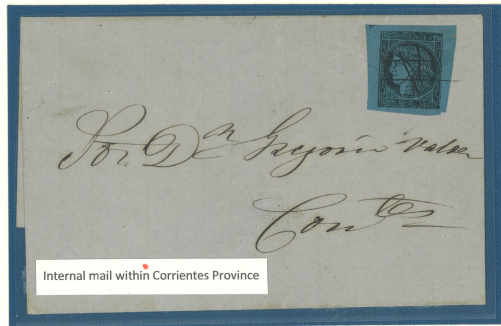 Sor. Dn Gregorio Valdes
Corrtes
Internal mail within Corrientes Province